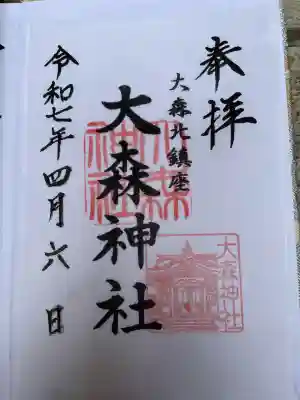 奉拝
大森北鎮座
大森神社
大森神社
大森神社
令和七年四月六日